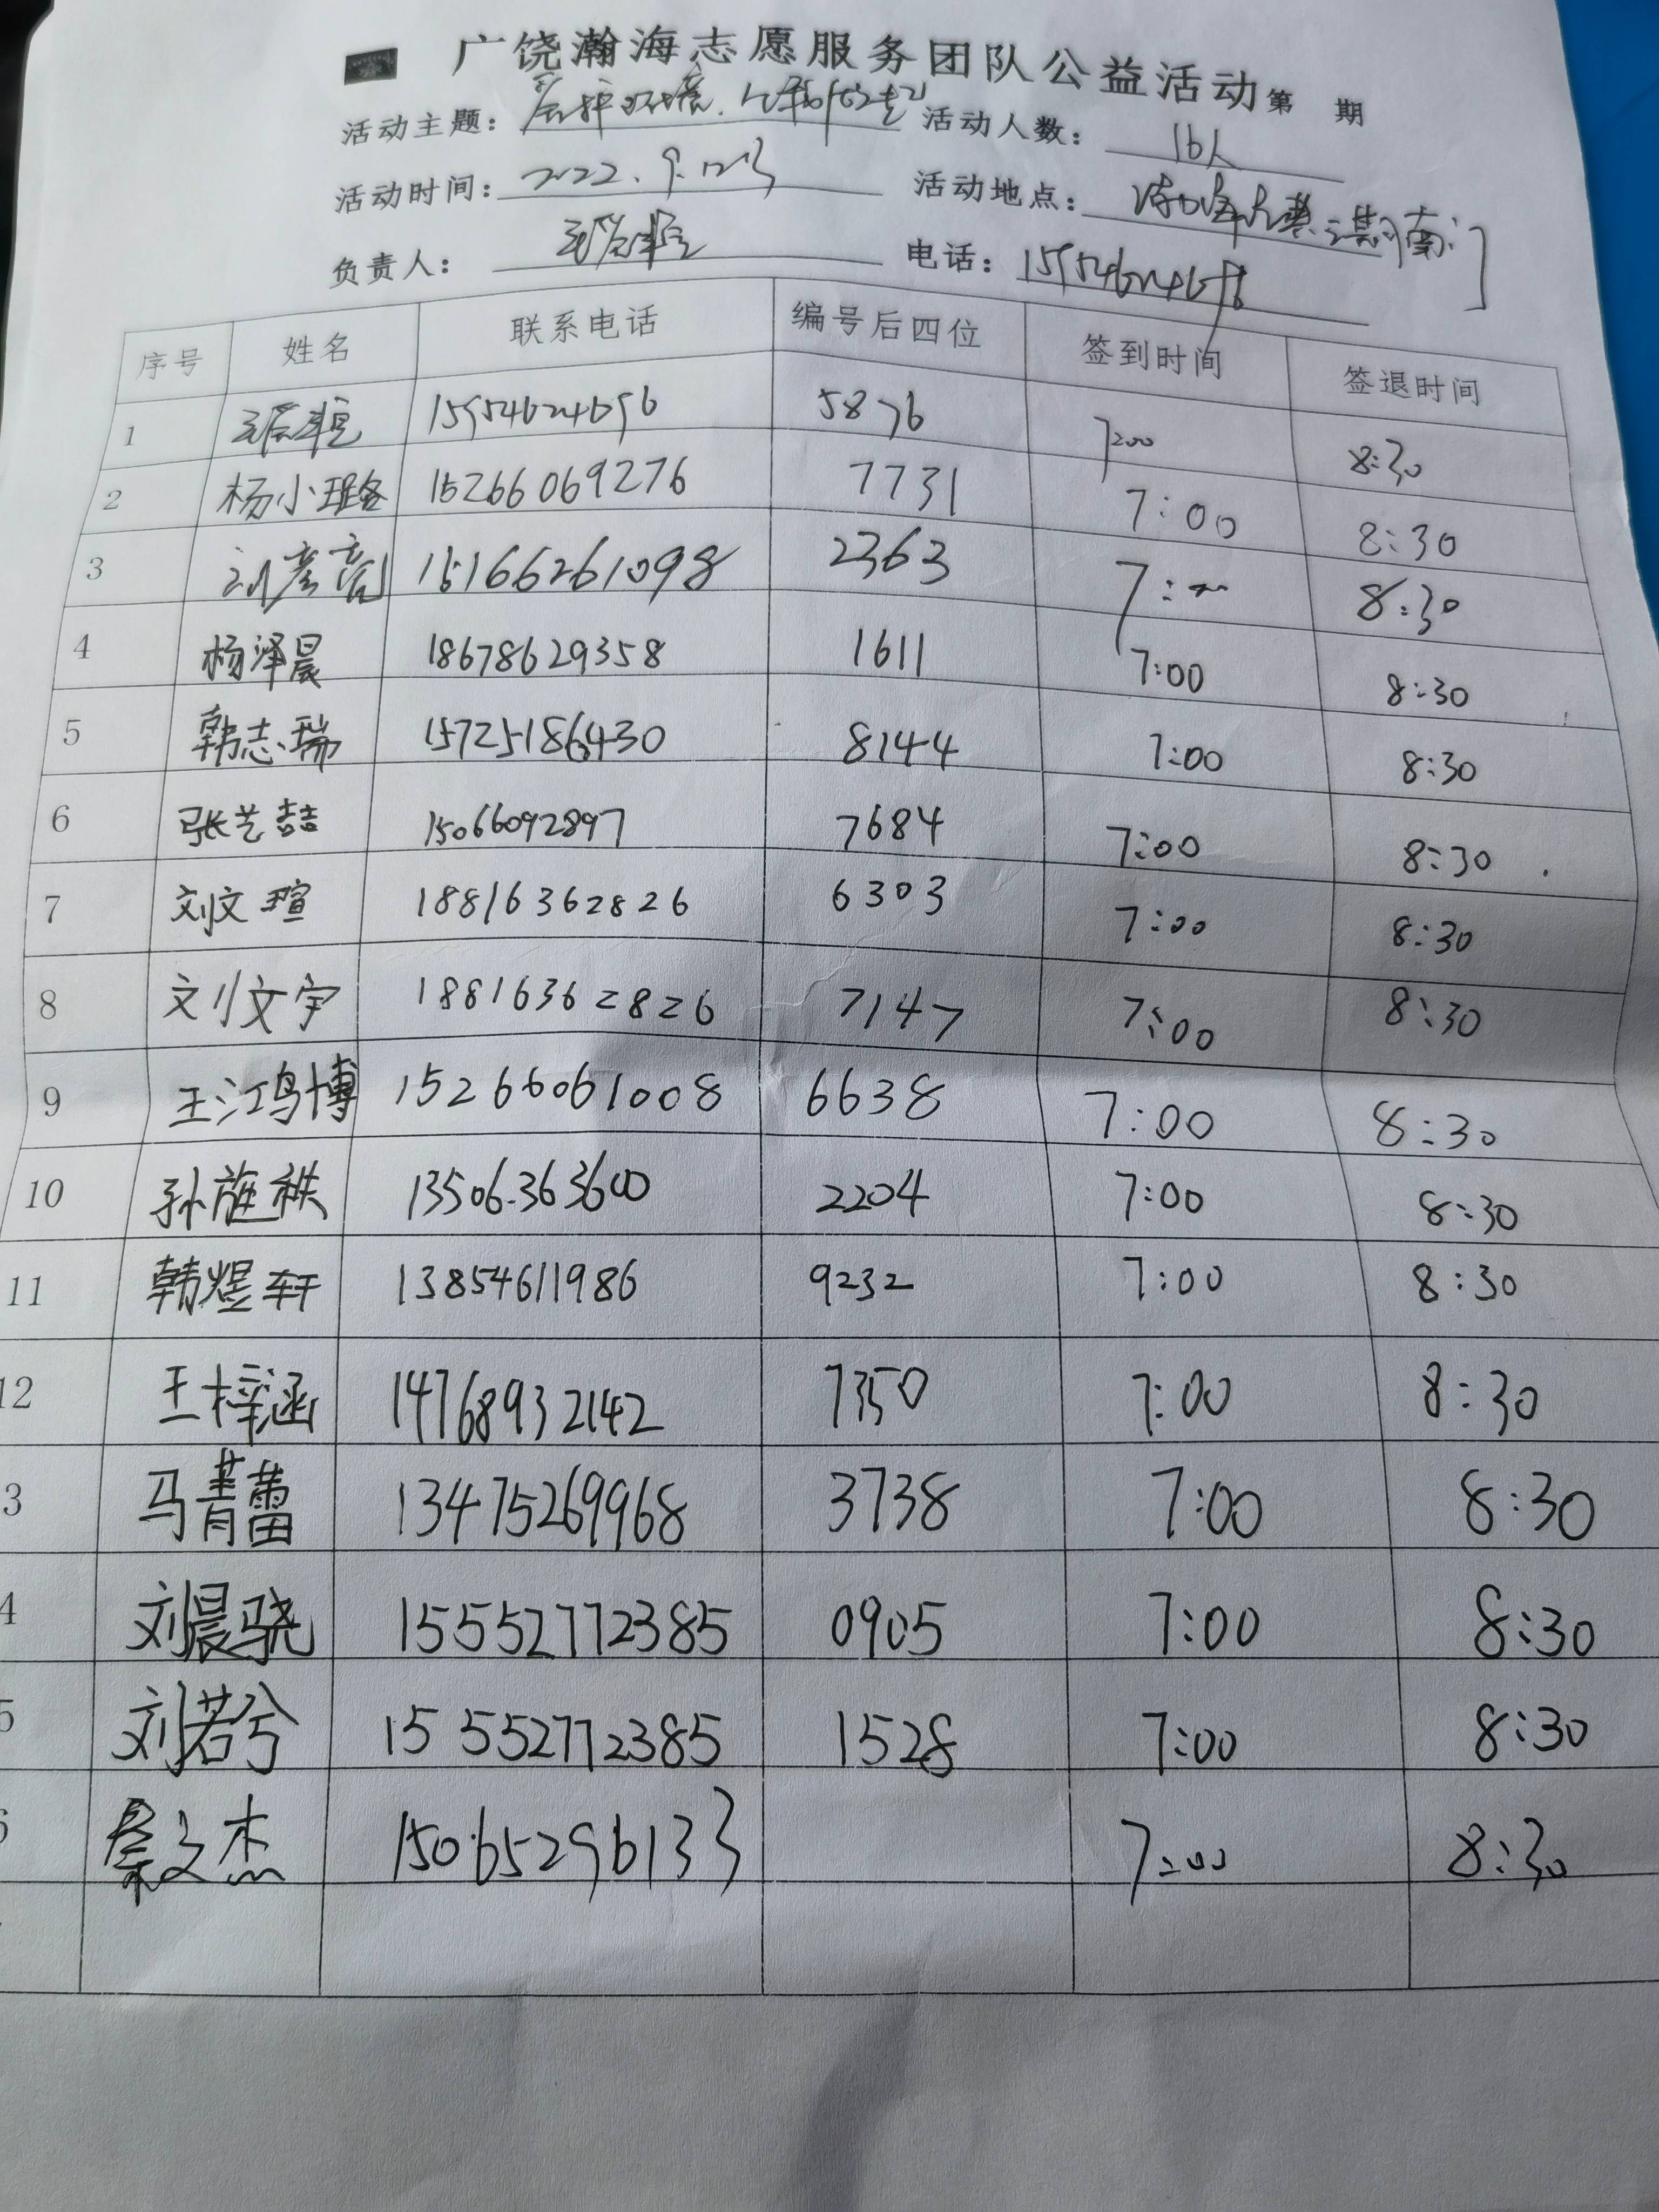 广饶瀚海志愿服务团队公益活动第 期
活动主题: 爱护环境.从我做起 活动人数: 16人
活动时间: 2022.9.12号 活动地点:
负责人: 电话:
序号 姓名 联系电话 编号后四位 签到时间 签退时间
1 15954624696 5876 7:00 8:30
2 杨小璐 15266069276 7731 7:00 8:30
3 刘彦亮 15166261098 2363 7:00 8:30
4 杨泽晨 18678629358 1611 7:00 8:30
5 韩志瑞 15725186430 8144 7:00 8:30
6 张艺喆 15066092897 7684 7:00 8:30
7 刘文瑄 18816362826 6303 7:00 8:30
8 刘文宇 18816362826 7147 7:00 8:30
9 王江鸿博 15266061008 6638 7:00 8:30
10 孙旌秩 13506363600 2204 7:00 8:30
11 韩煜轩 13854611986 9232 7:00 8:30
12 王梓涵 14768932142 7350 7:00 8:30
3 马菁蕾 13475269968 3738 7:00 8:30
4 刘晨骁 15552772385 0905 7:00 8:30
5 刘若兮 15552772385 1528 7:00 8:30
秦文杰 15065296133 7:00 8:30